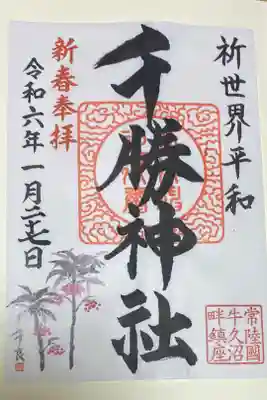 祈世界平和
千勝神社
新春奉拝
令和六年一月二十七日
常陸國
牛久沼
畔鎮座